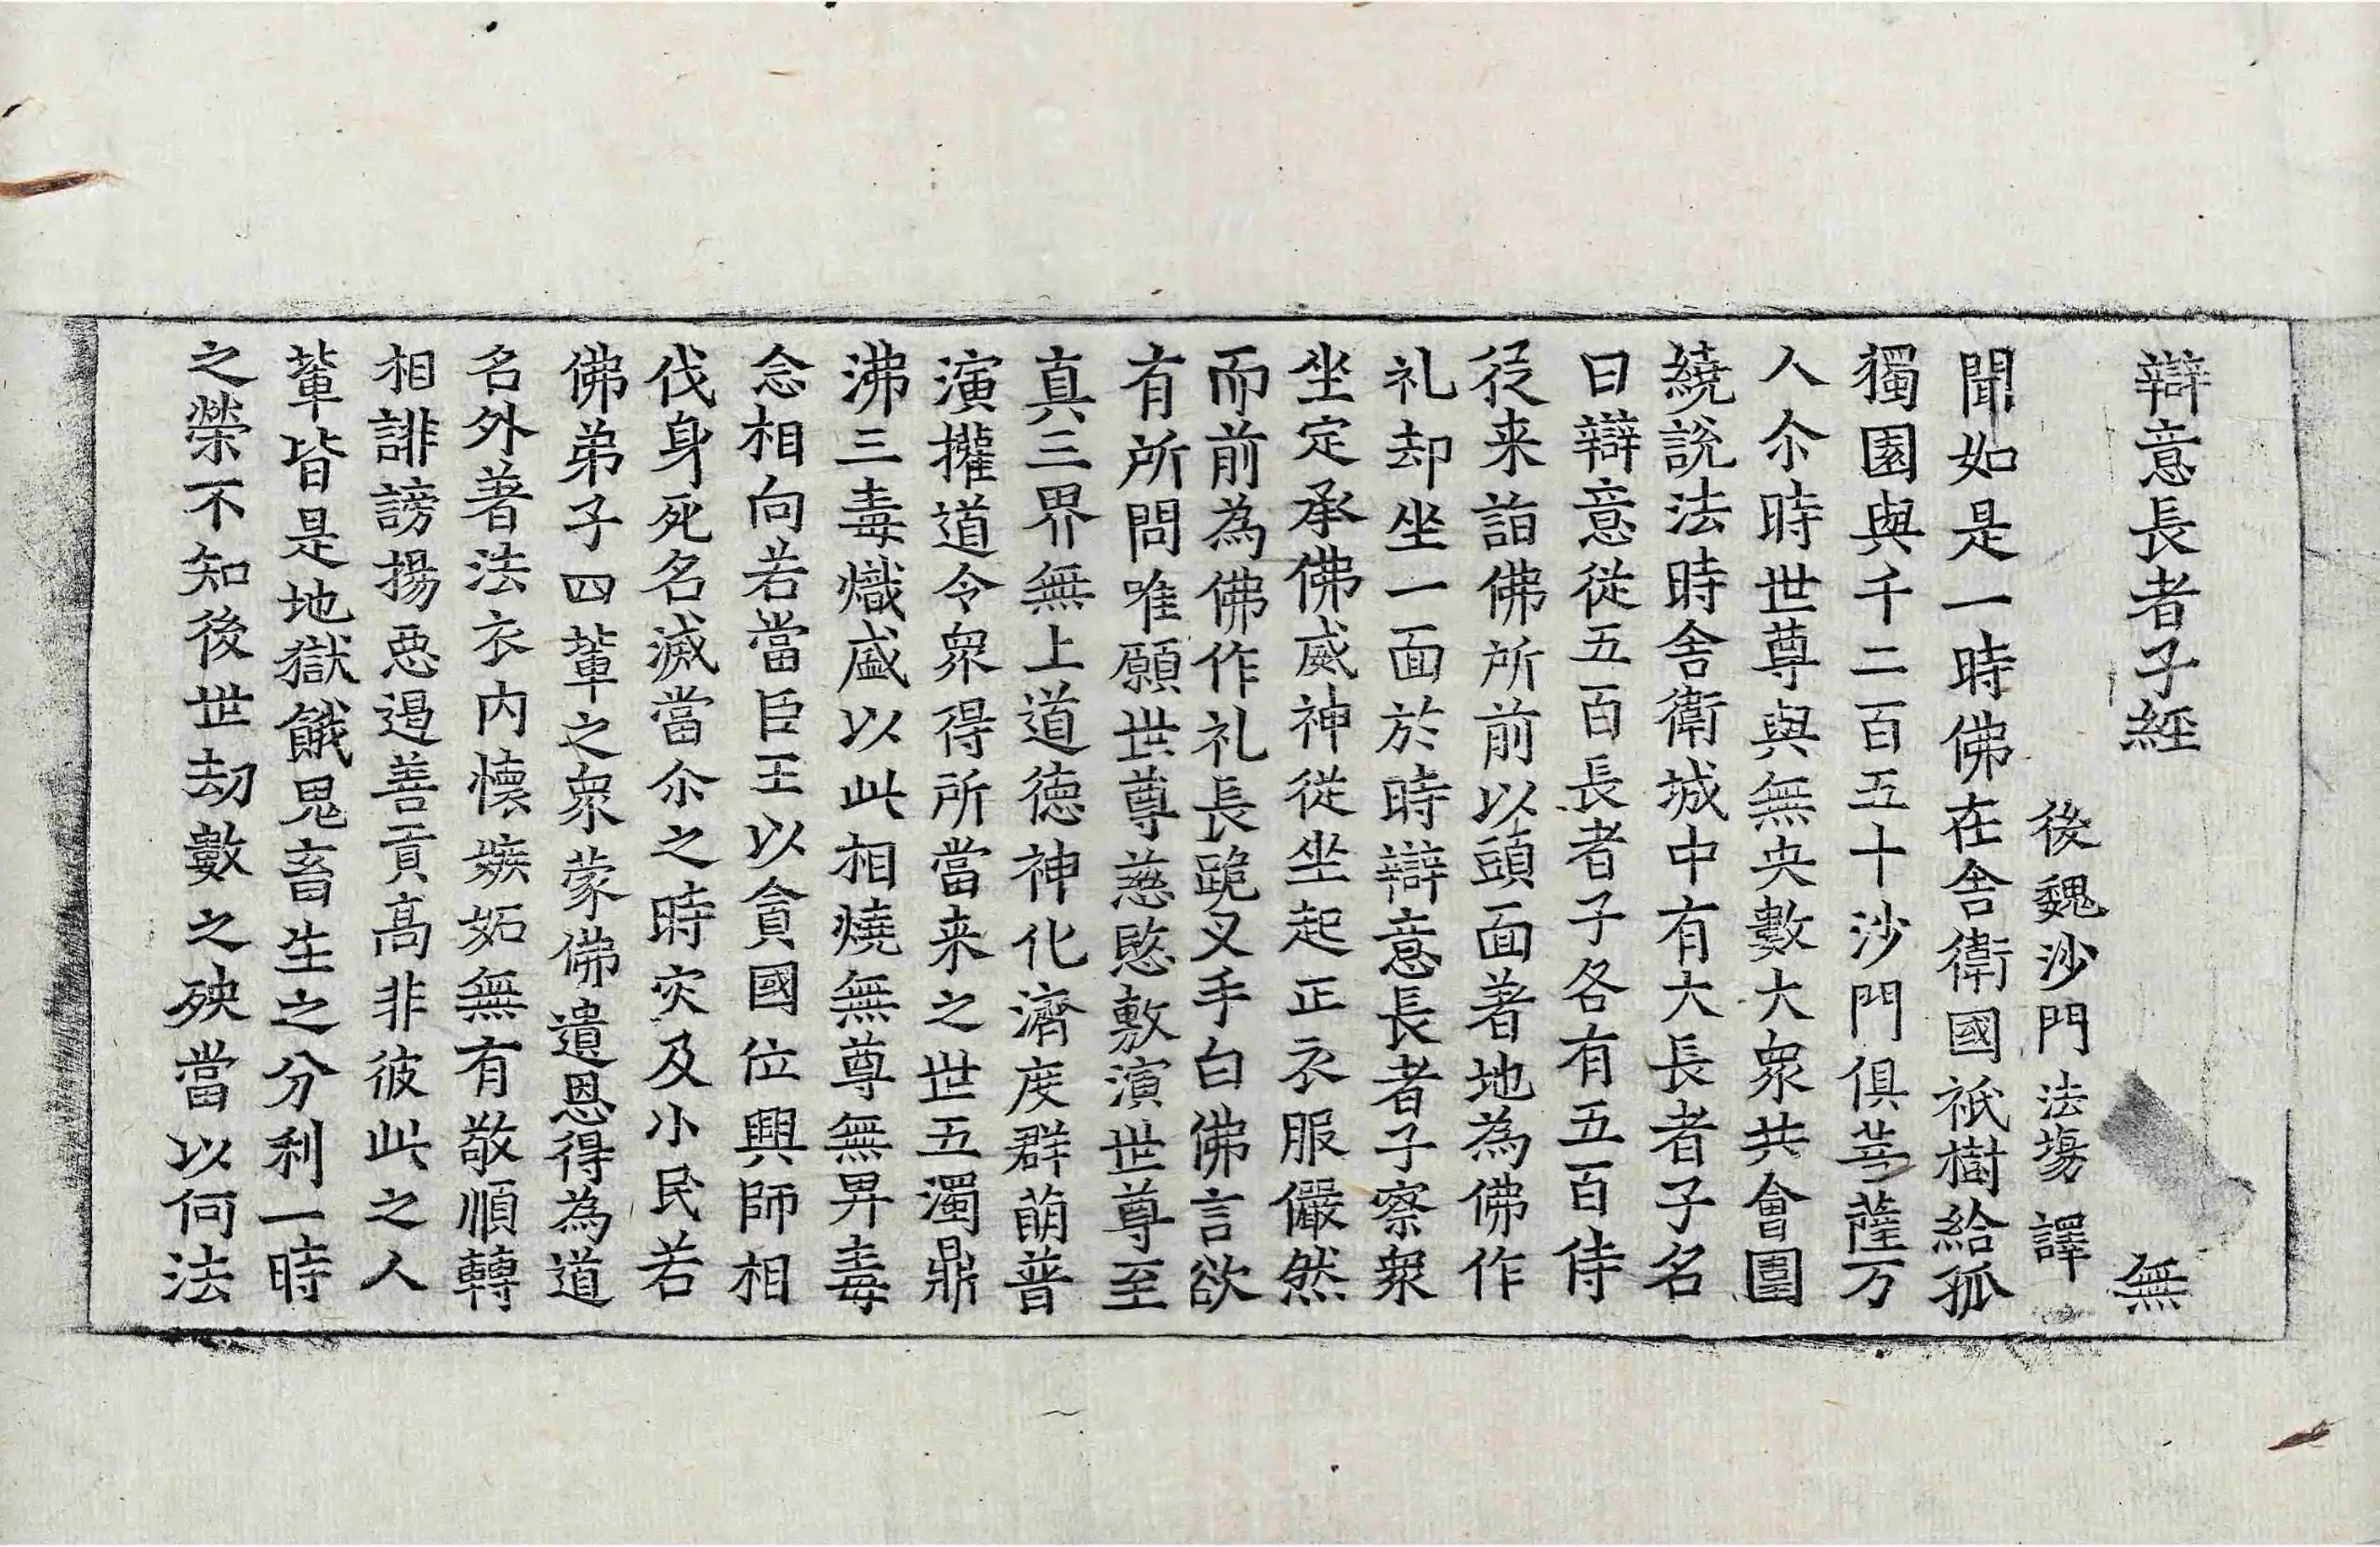 辯意長者子經 無
後魏沙門法場譯
聞如是一時佛在舍衛國祇樹給孤
獨園與千二百五十沙門俱菩薩万
人尒時世尊與無央數大衆共會圍
繞說法時舍衛城中有大長者子名
曰辯意從五百長者子各有五百侍
從来詣佛所前以頭面著地為佛作
礼却坐一面於時辯意長者子察衆
坐定承佛威神從坐起正衣服儼然
而前為佛作礼長跪叉手白佛言欲
有所問唯願世尊慈愍敷演世尊至
真三界無上道德神化濟度群萌普
演權道令衆得所當来之世五濁鼎
沸三毒熾盛以此相燒無尊無卑毒
念相向若當臣王以貪國位興師相
伐身死名滅當尒之時灾及小民若
佛弟子四輩之衆蒙佛遺恩得為道
名外著法衣内懷嫉妬無有敬順轉
相誹謗揚惡遏善貢高非彼此之人
輩皆是地獄餓鬼畜生之分利一時
之榮不知後世劫數之殃當以何法